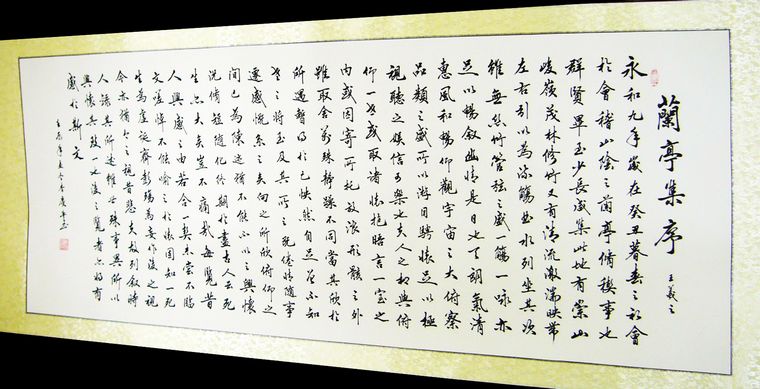 蘭亭集序
王羲之
永和九年歲在癸丑暮春之初會
於會稽山陰之蘭亭脩稧事也
群賢畢至少長咸集此地有崇山
峻嶺茂林修竹又有清流激湍映帶
左右引以為流觴曲水列坐其次
雖無絲竹管弦之盛觴一詠亦
足以暢敘幽情是日也天朗氣清
惠風和暢仰觀宇宙之大俯察
品類之盛所以游目騁懷足以極
視聽之娛信可樂也夫人之相與俯
仰一世或取諸懷抱晤言一室之
內或因寄所托放浪形骸之外
雖取舍萬殊靜躁不同當其欣於
所遇暫得於己快然自足曾不知
老之將至及其所之既倦情隨事
遷感慨系之矣向之所欣俯仰之
間已為陳迹猶不能不以之興懷
況脩短隨化終期於盡古人云死
生亦大矣豈不痛哉每覽昔
人興感之由若合一契未嘗不臨
文嗟悼不能喻之於懷固知一死
生為虛誕齊彭殤為妄作後之視
今亦猶今之視昔悲夫故列敘時
人錄其所述雖世殊事異所以
興懷其致一也後之覽者亦將有
感於斯文